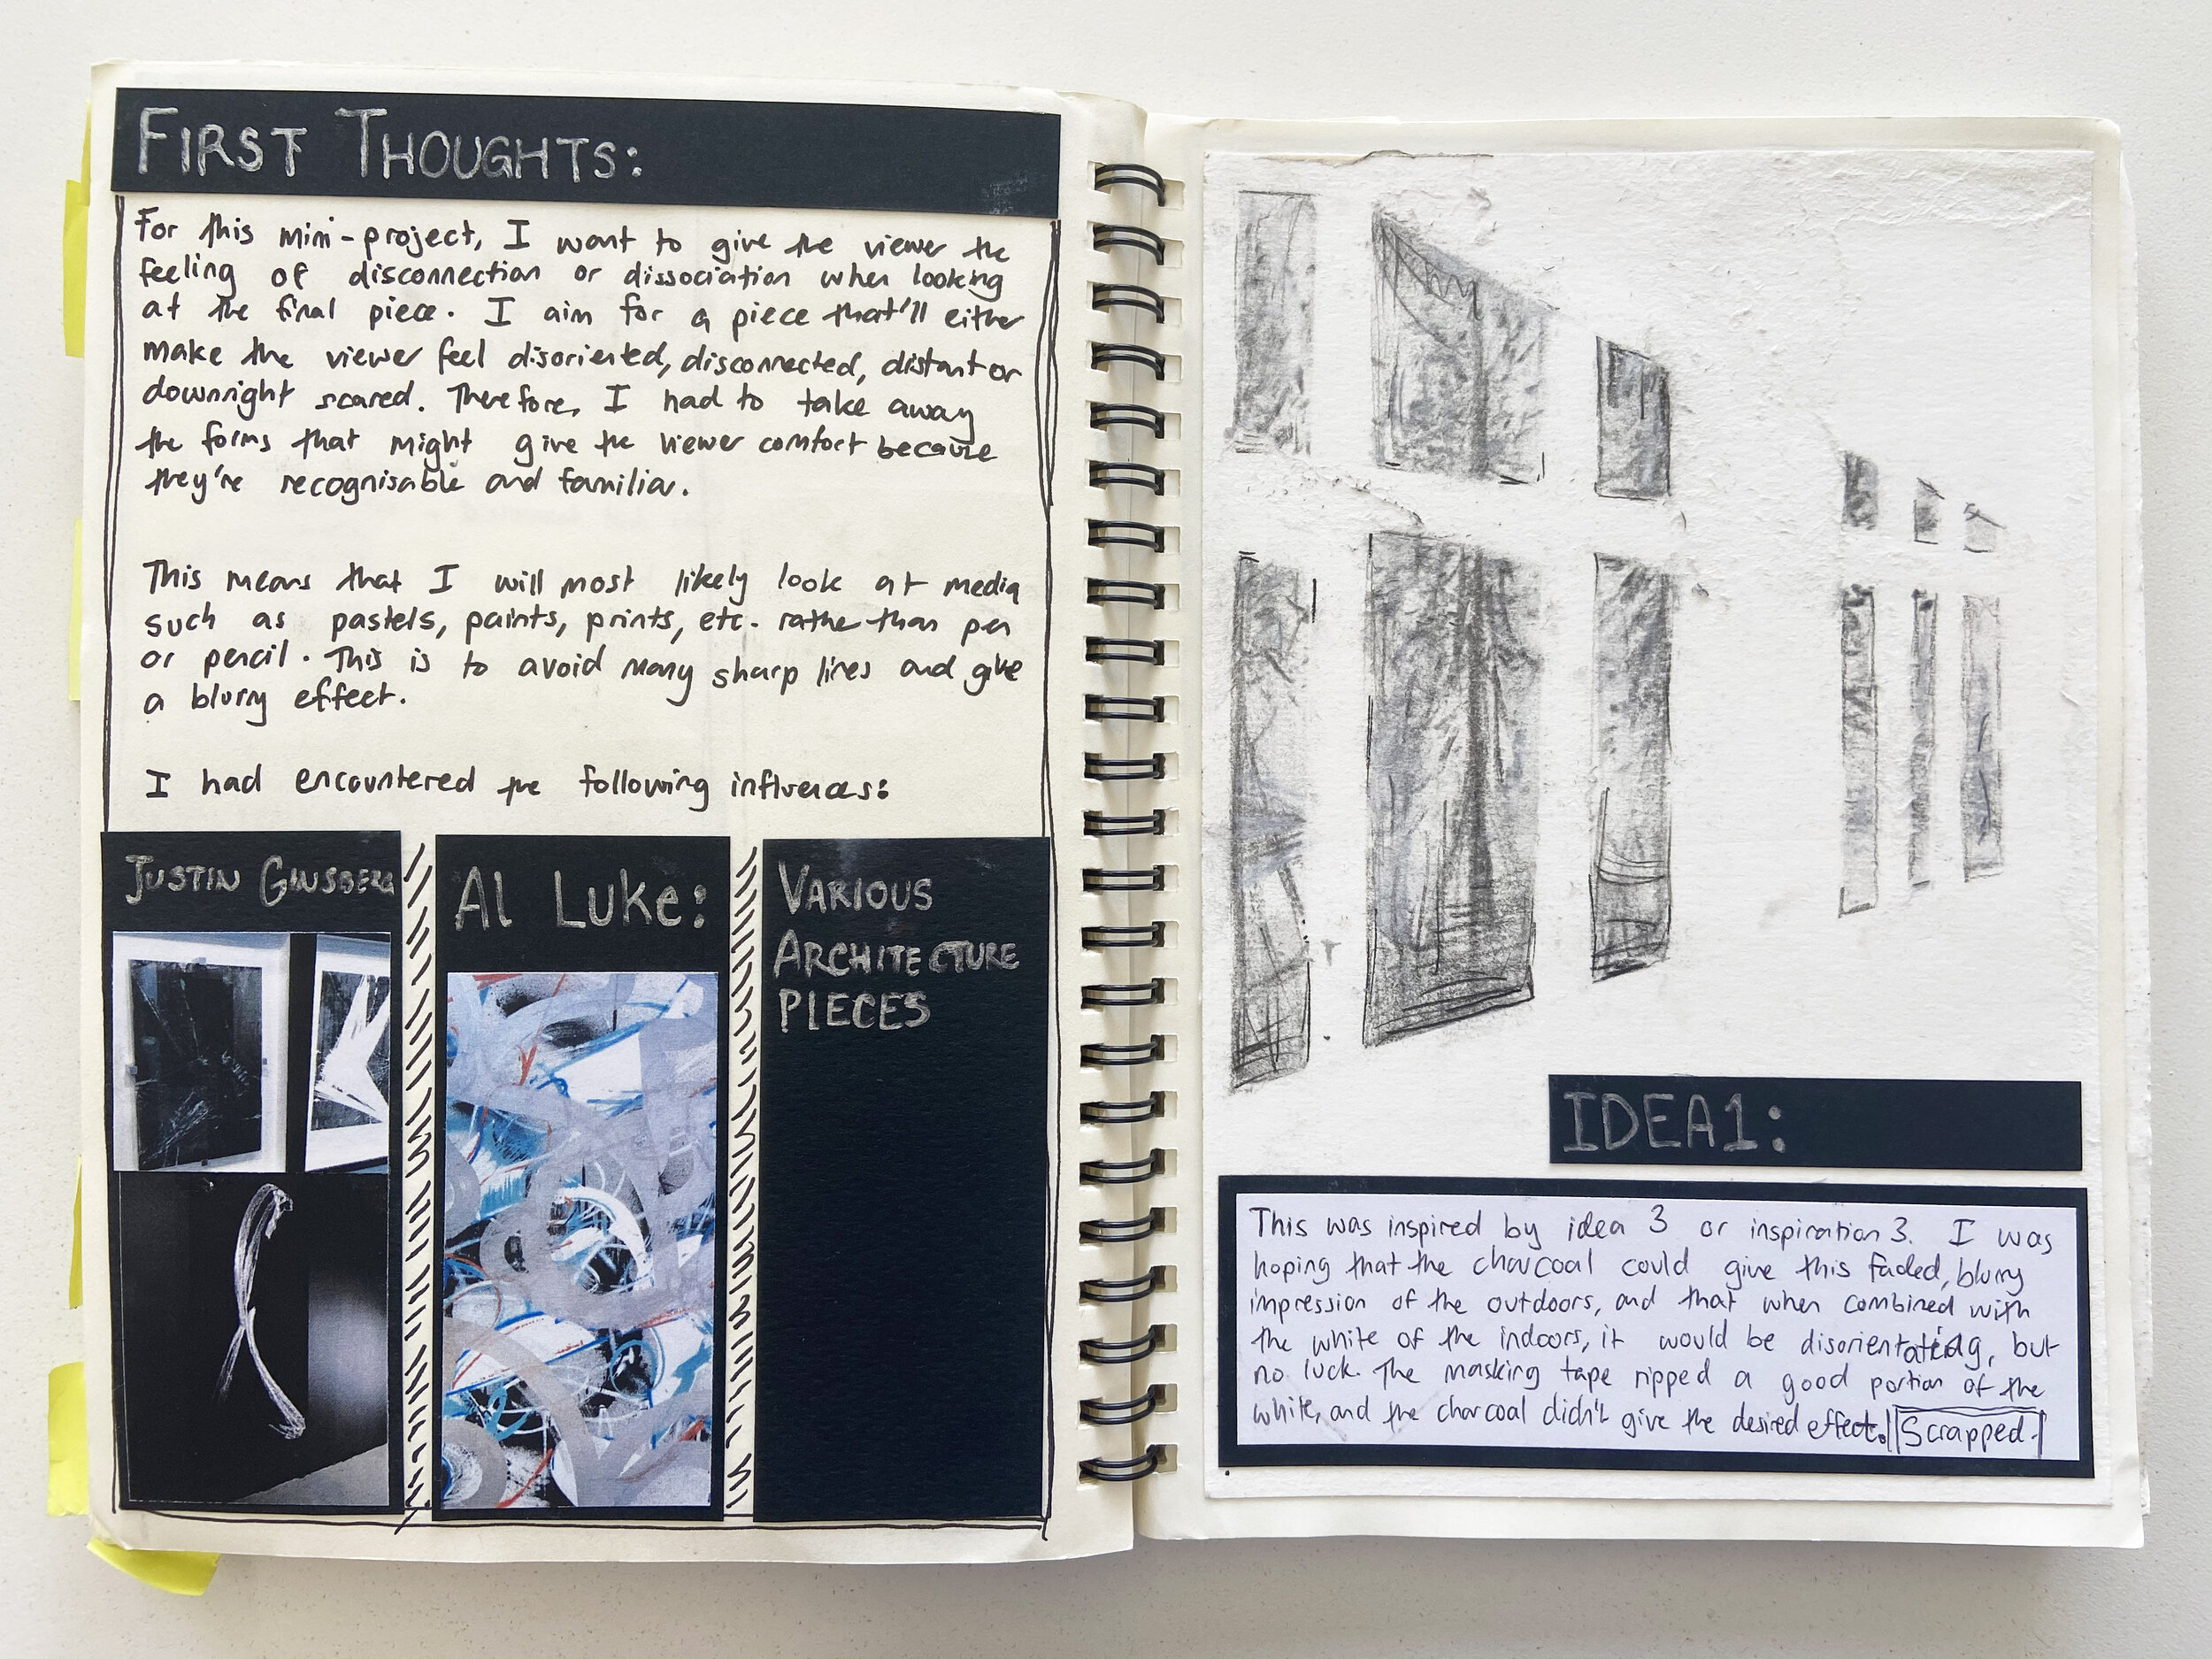 FIRST THOUGHTS:
For this mini-project, I want to give the viewer the
feeling of disconnection or dissociation when looking
at the final piece. I aim for a piece that'll either
make the viewer feel disoriented, disconnected, distant or
downright scared. Therefore, I had to take away
the forms that might give the viewer comfort because
they're recognisable and familiar.
This means that I will most likely look at media
such as pastels, paints, prints, etc. rather than pen
or pencil. This is to avoid many sharp lines and give
a blurry effect.
I had encountered the following influences:
JUSTIN GINSBERG
Al Luke:
VARIOUS
ARCHITECTURE
PIECES
IDEA1:
This was inspired by idea 3 or inspiration 3. I was
hoping that the charcoal could give this faded, blurry
impression of the outdoors, and that when combined with
the white of the indoors, it would be disorientating, but
no luck. The masking tape ripped a good portion of the
white, and the charcoal didn't give the desired effect. Scrapped.